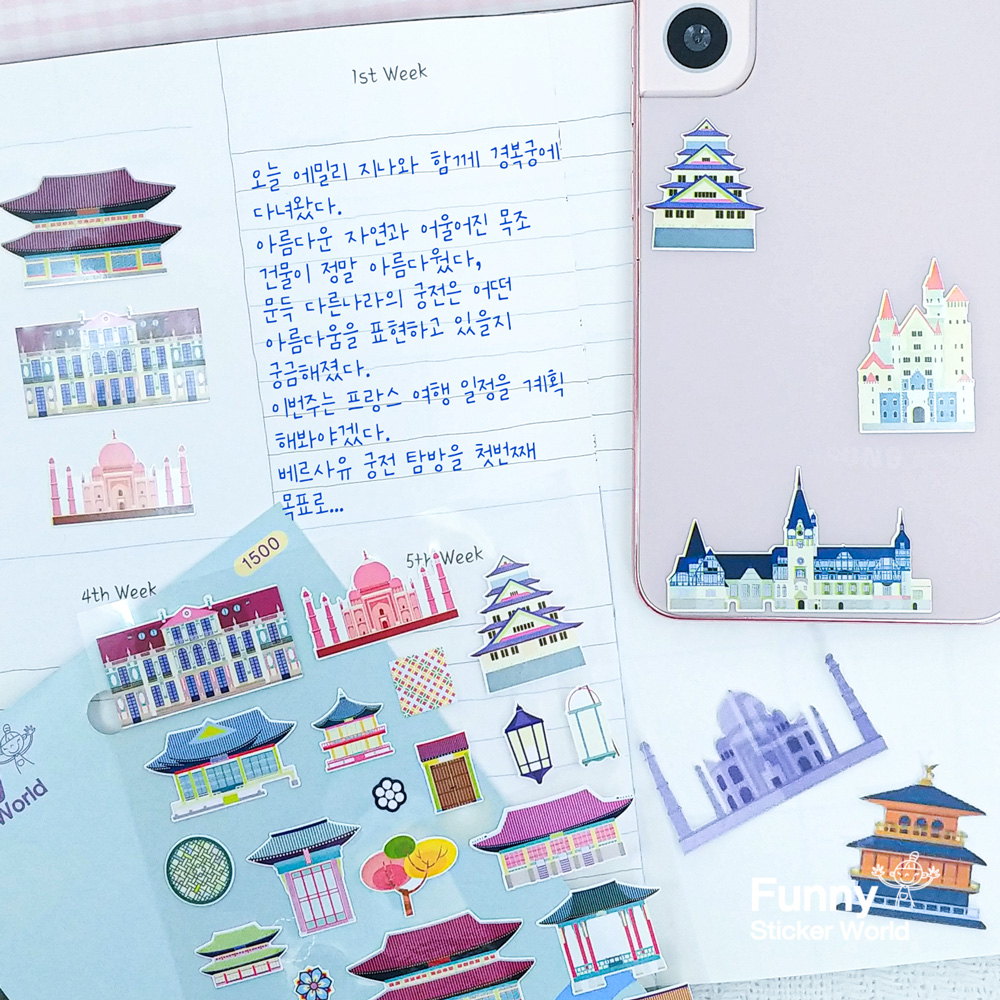 1st Week
오늘 에밀리 지나와 함께 경복궁에
다녀왔다.
아름다운 자연과 어울어진 목조
건물이 정말 아름다웠다,
문득 다른나라의 궁전은 어떤
아름다움을 표현하고 있을지
궁금해졌다.
이번주는 프랑스 여행 일정을 계획
해봐야겠다.
베르사유 궁전 탐방을 첫번째
목표로...
1500
4th Week
5th Week
World
Funny
Sticker World